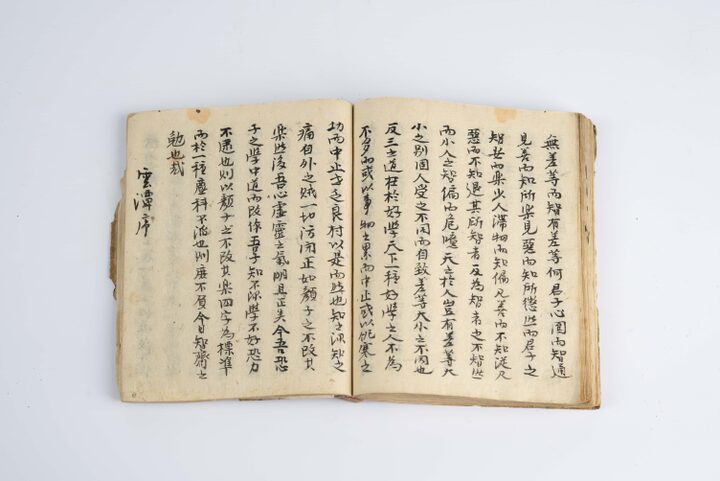 無差等而智有差等何君子心圓而智通
見善而知所樂見惡而知所懲此而君子之
智出而樂少人滯物而知偏見善而不知從見
惡而不知退其所智者反為智者之不智此
而小人之智偏而危噫天之於人豈有差等大
小之別因人受之不同而自致差等大小之不同也
反三之道在於好學天下一種好學之人不為
不多而或以事物之累而中止或以飢寒之
功而中止者乏良材以是而然也知之深知之
痛自外之賊一切防閑正如顏子之不改其
樂然後吾心虛靈之氣明且正矣今吾恐
子之學中道而改係吾子知不深學不好恐力
不逮也則以顏子之不改其樂四字為標準
而於一種塵科不流也則庶不負今日智齋之
勉也哉
雲潭序